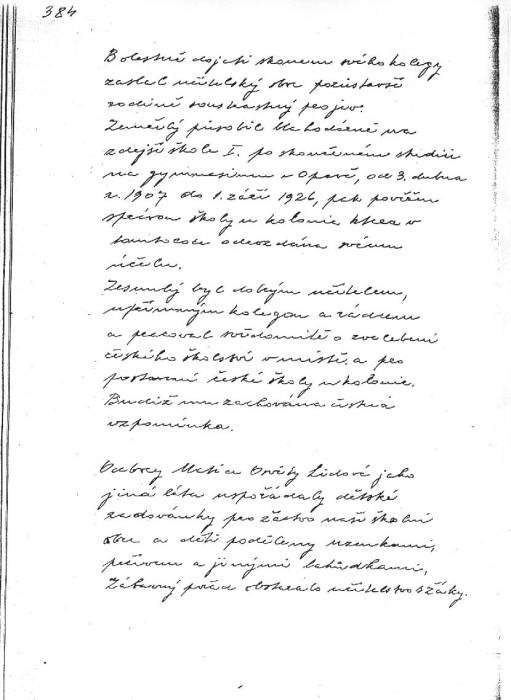 384
Bolestně dojati skonem svého kolegy
zaslal učitelský sbor pozůstalé
rodině soustrastný projev.
Zemřelý působil blahodárně na
zdejší škole I. po skončeném studiu
na gymnasium v Opavě, od 3. dubna
r. 1907 do 1. září 1926, pak pověřen
správou školy u kolonie která v
tomto roce odevzdána svému
účelu.
Zesnulý byl dobrým učitelem,
upřímným kolegou a rádcem
a pracoval svědomitě o zvelebení
českého školství v místě a pro
postavení české školy u kolonie.
Budiž mu zachována čestná
vzpomínka.
Odbory Matice Osvěty Lidové jako
jiná léta uspořádaly dětské
radovánky pro žactvo naší školní
obce a děti poděleny uzenkami,
pečivem a jinými lahůdkami,
Zábavný pořad obstaralo učitelstvo s žáky.